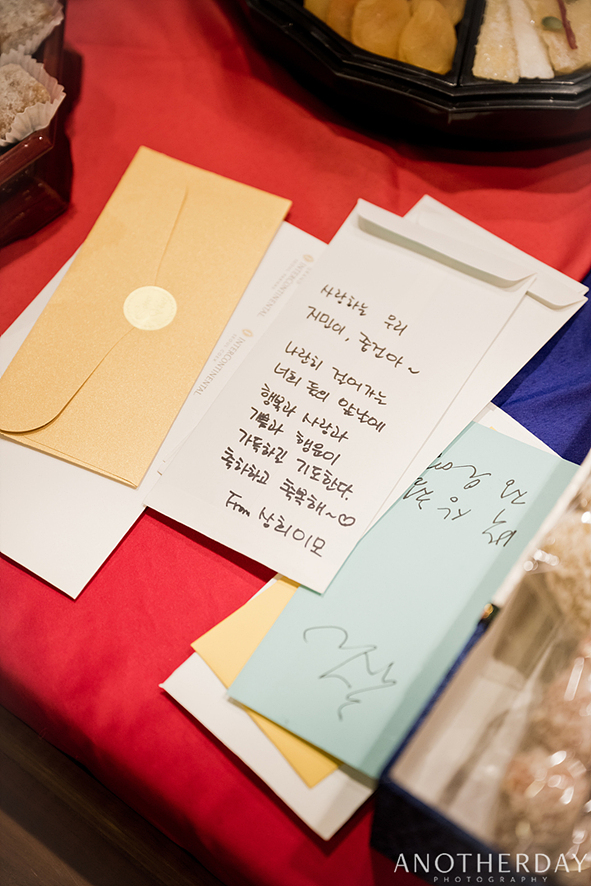 INTERCONTINENTAL
INTERCONTINENTAL
사랑하는 우리
지민이, 중건아~
나란히 걸어가는
너희 둘의 앞날에
행복과 사랑과
기쁨과 행운이
가득하길 기도한다.
축하하고 축복해~♡
From 상희이모
ANOTHERDAY
PHOTOGRAPHY